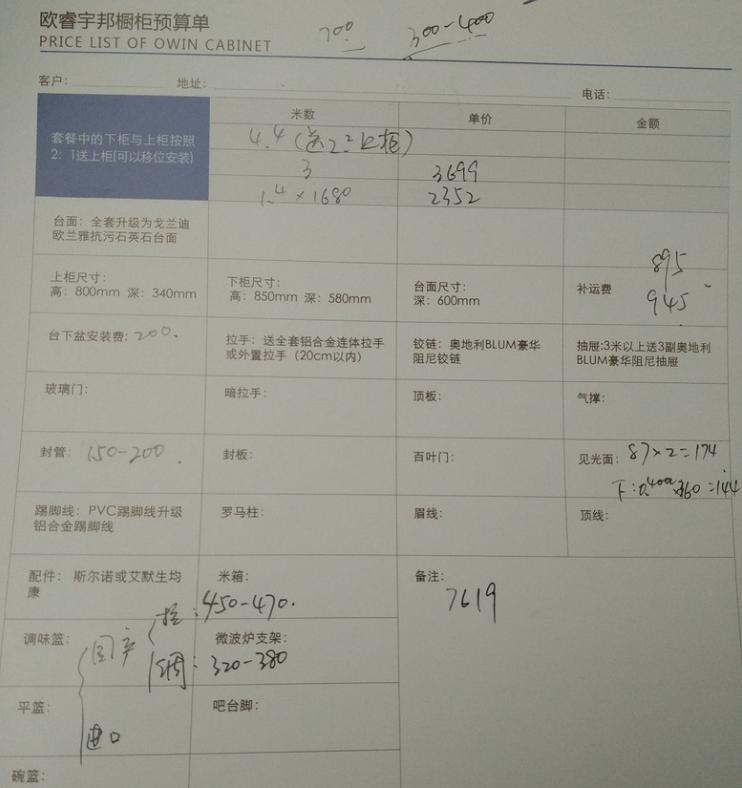 欧睿宇邦橱柜预算单
PRICE LIST OF OWIN CABINET
700 300-400
客户: 地址: 电话:
套餐中的下柜与上柜按照
2:1送上柜(可以移位安装)
米数 单价 金额
4.4(送2.2上柜)
3 3699
1.4×1680 2352
台面:全套升级为戈兰迪
欧兰雅抗污石英石台面
上柜尺寸:
高:800mm 深:340mm
下柜尺寸:
高:850mm 深:580mm
台面尺寸:
深:600mm
补运费
895
945
台下盆安装费:200.
拉手:送全套铝合金连体拉手
或外置拉手(20cm以内)
铰链:奥地利BLUM豪华
阻尼铰链
抽屉:3米以上送3副奥地利
BLUM豪华阻尼抽屉
玻璃门: 暗拉手: 顶板: 气撑:
封管:150-200. 封板: 百叶门: 见光面:87×2=174
下:0.400×360=144
踢脚线:PVC踢脚线升级
铝合金踢脚线
罗马柱: 眉线: 顶线:
配件:斯尔诺或艾默生均
康
米箱: 备注:
7619
拉:450-470.
调味篮: 国产 微波炉支架:
调:320-380
平篮: 吧台脚:
进口
碗篮: